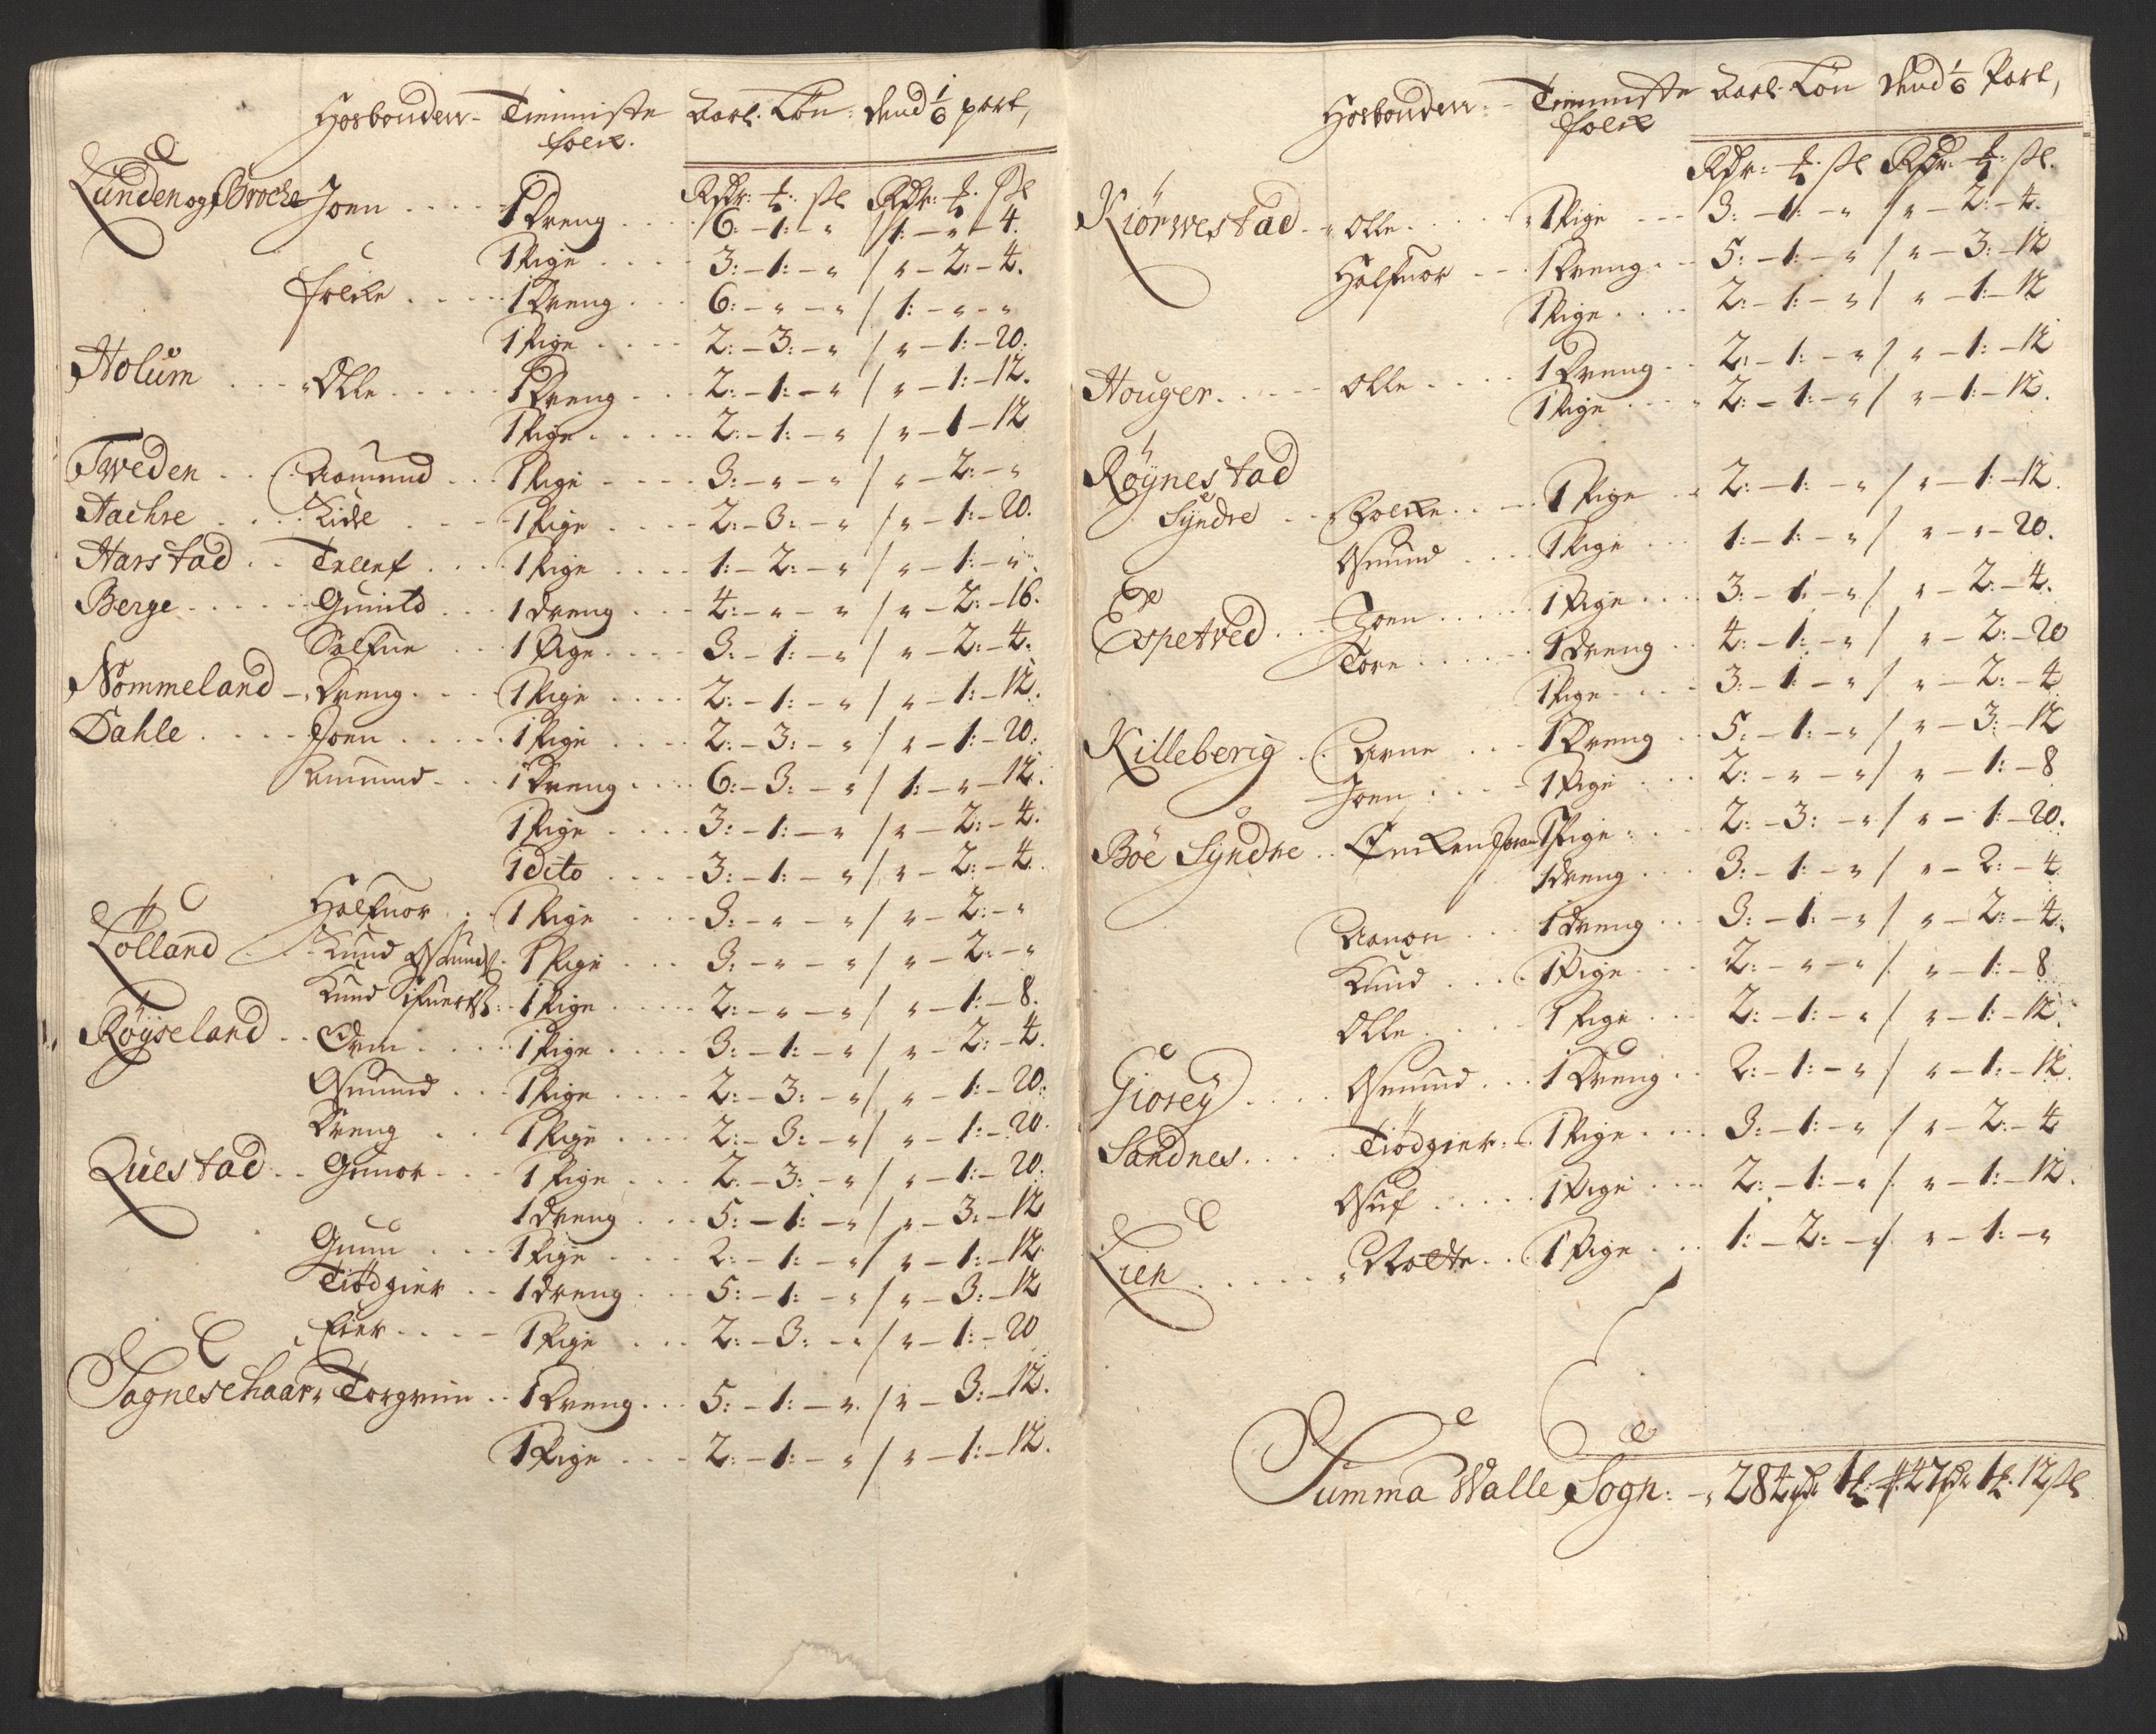 Hosbonden- Tienniste Aarl. Løn: dend 1/6 part,
folck.
Rdr: ȶ: ßl Rdr: ȶ: ßl
Lunden og Broche Joen .... 1 Dreng ... 6: - 1: - " / 1: - " - 4.
1 Pige .... 3: - 1: - " / " - 2: - 4.
Folcke .... 1 Dreng ... 6: - " - " / 1: - " - "
1 Pige .... 2: - 3: - " / " - 1: - 20.
Holum ... Olle ..... 1 Dreng ... 2: - 1: - " / " - 1: - 12.
1 Pige ..... 2: - 1: - " / " - 1 - 12
Tweden .. Aamund .. 1 Pige .... 3: - " - " / " - 2: - "
Aachre .... Kidel ... 1 Pige .... 2: - 3: - " / " - 1: - 20.
Harstad .. Tellef .... 1 Pige .... 1: - 2: - " / " - 1: - "
Berge ..... Gunild ... 1 dreng ... 4: - " - " / " - 2: - 16.
Salfue .. 1 Pige .... 3: - 1: - " / " - 2: - 4.
Nommeland - Dreng ... 1 Pige .... 2: - 1: - " / " - 1: - 12.
Dahle ..... Joen ..... 1 Pige .... 2: - 3: - " / " - 1: - 20.
Amund ... 1 Dreng .... 6: - 3: - " / 1: - " - 12.
1 Pige .... 3: - 1: - " / " - 2: - 4.
1 dito .... 3: - 1: - " / " - 2: - 4.
Halfuor .. 1 Pige ... 3: - " - " / " - 2: - "
Lölland ... Knud Osmunds. 1 Pige ... 3: - " - " / " - 2: - "
Knud Sifuerds: 1 Pige .... 2: - " - " / " - 1: - 8.
Röyseland .. Orm .... 1 Pige .... 3: - 1: - " / " - 2: - 4.
Osmund ... 1 Pige .... 2: - 3: - " / " - 1: - 20.
Dreng .. 1 Pige .... 2: - 3: - " / " - 1: - 20.
Questad .. Gunor ... 1 Pige ... 2: - 3: - " / " - 1: - 20.
1 dreng ... 5: - 1: - " / " - 3: - 12
Gunn ... 1 Pige .... 2: - 1: - " / " - 1: - 12.
Tiödgier .. 1 dreng ... 5: - 1: - " / " - 3: - 12
Eier .... 1 Pige ... 2: - 3: - " / " - 1: - 20
Sagneschaar " Torgrim .. 1 Dreng ... 5: - 1: - " / " - 3: - 12.
1 Pige ... 2: - 1: - " / " - 1: - 12.
Hosbonden: - Tienniste Aarl. Løn dend 1/6 Part,
folck
Rdr: ȶ: ßl Rdr: ȶ: ßl.
Kiörwestad .. Olle .... 1 Pige ... 3: - 1: - " / " - 2: - 4.
Halfuor .. 1 Dreng .. 5: - 1: - " / " - 3: - 12
1 Pige .... 2: - 1: - " / " - 1: - 12
Houger ..... Olle .... 1 Dreng .. 2: - 1: - " / " - 1: - 12
1 Pige ... 2: - 1: - " / " - 1: - 12.
Röynestad
Syndre .. Folcke ... 1 Pige .. 2: - 1: - " / " - 1: - 12.
Osmund ... 1 Pige ... 1: - 1: - " / " - " - 20.
Espetved ... Joen .... 1 Pige .... 3: - 1: - " / " - 2: - 4.
Tore ..... 1 dreng .. 4: - 1: - " / " - 2: - 20
1 Pige .... 3: - 1: - " / " - 2: - 4
Killeberig .. Arne ... 1 Dreng .. 5: - 1: - " / " - 3: - 12
Joen .... 1 Pige ... 2: - " - " / " - 1: - 8
Böe Syndre .. Encken 1 Pige ... 2: - 3: - " / " - 1: - 20.
1 dreng ... 3: - 1: - " / " - 2: - 4
Aanon ... 1 dreng ... 3: - 1: - " / " - 2: - 4.
Knud .... 1 Pige ... 2: - " - " / " - 1: - 8
Olle .... 1 Pige ... 2: - 1: - " / " - 1: - 12.
Giorey .... Osmund ... 1 Dreng .. 2: - 1: - " / " - 1: - 12.
Sandnes ..... Tiödgier: 1 Pige .... 3: - 1: - " / " - 2: - 4
Osuf ..... 1 Pige .... 2: - 1: - " / " - 1: - 12.
Lien ...... 1 Pige ... 1: - 2: - " / " - 1: - "
Summa Walle Sogn: - 284 rdr 1 ȶ: 47 rdr 1 ȶ. 12 ßl